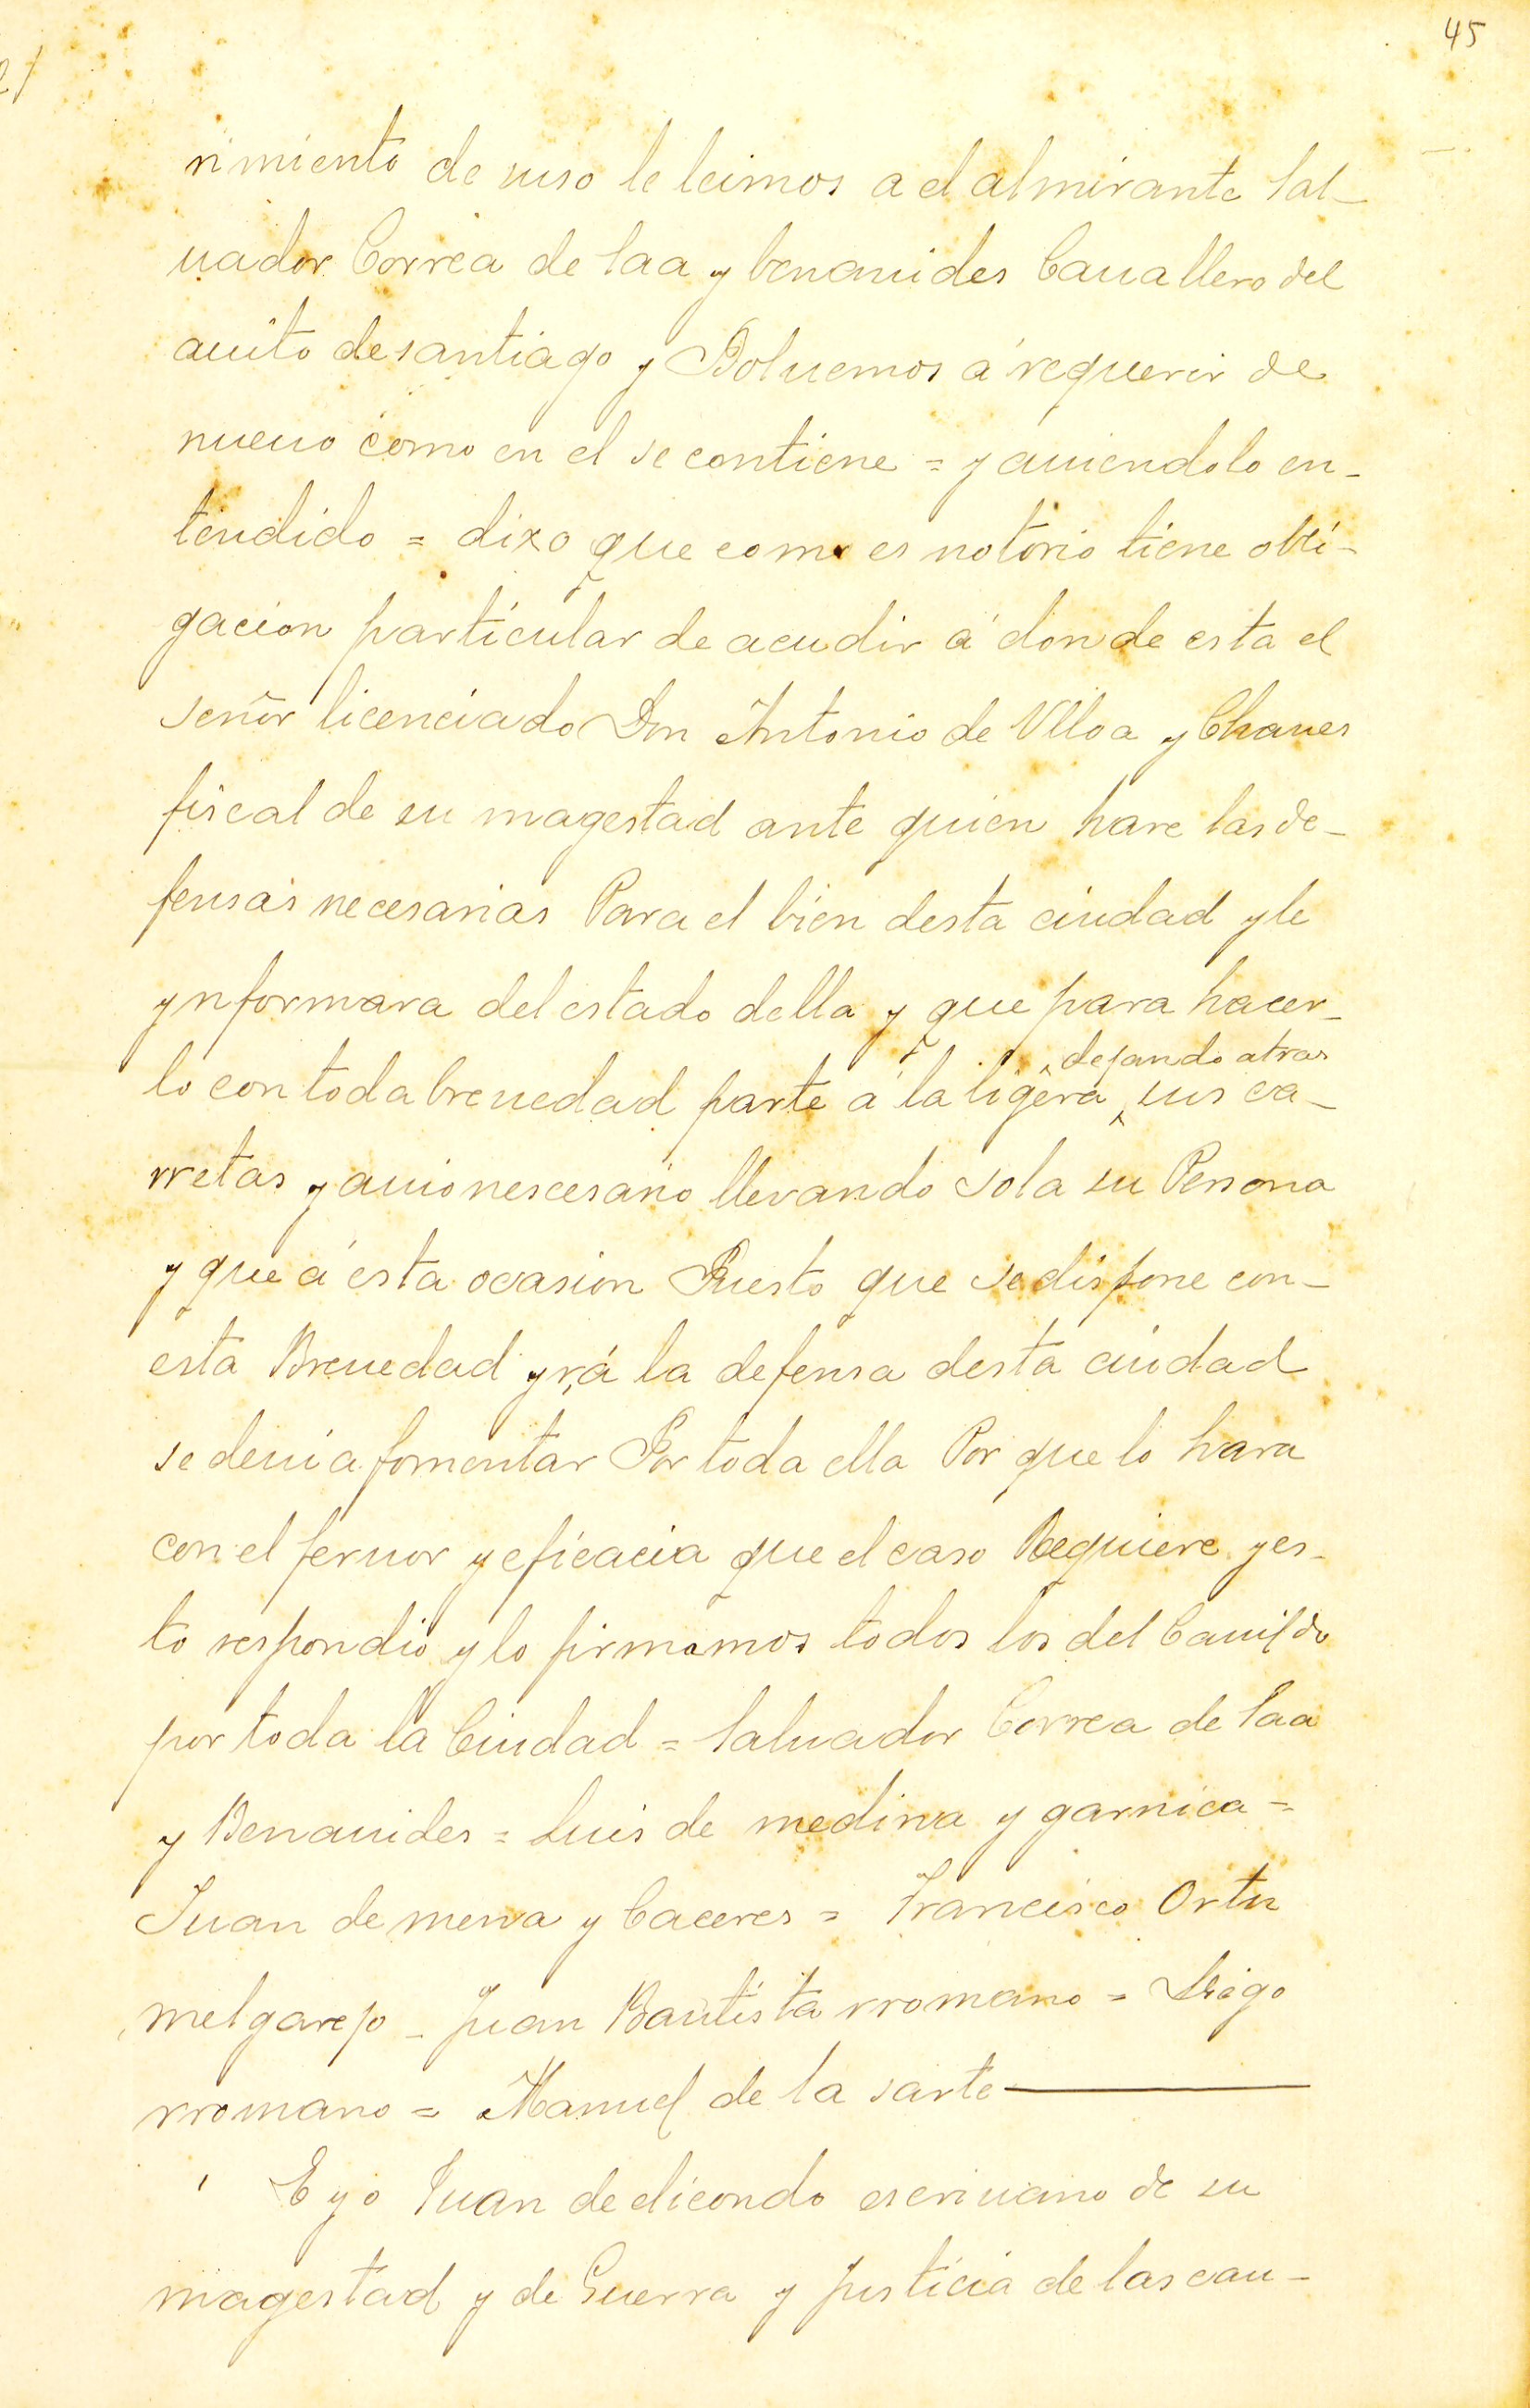 45
rimiento de uso le leimos a el almirante Sal_
uador Correa de Saa y benauides Cauallero del
auito de santiago y Boluemos á requerir de
nueuo como en el se contiene = y auiendolo en_
tendido = dixo que como es notorio tiene obli_
gacion particular de acudir á donde esta el
señor licenciado Don Antonio de Ulloa y Chaues
fiscal de su magestad ante quien hare las de_
fensas necesarias Para el bien desta ciudad y le
ynformara del estado della y que para hacer_
dejando atras
lo con toda breuedad parte á la ligera sus ca_
rretas y auio nescesario llevando sola su Persona
y que á esta ocasion Puesto que se dispone con_
esta Breuedad yrá la defensa desta ciudad
se deuia fomentar Por toda ella Por que lo hara
con el feruor y eficacia que el caso Requiere y es_
to respondio y lo firmamos todos los del Cauildo
por toda la Ciudad = Saluador Correa de Saa
y Benauides = Luis de medina y garnica =
Juan de mena y Caceres = Francisco Ortiz
melgarejo _ Juan Bautista rromano = Diego
rromano = Manuel de la sarte
E yo Juan de elicondo escriuano de su
magestad y de Guerra y justicia de las cau_